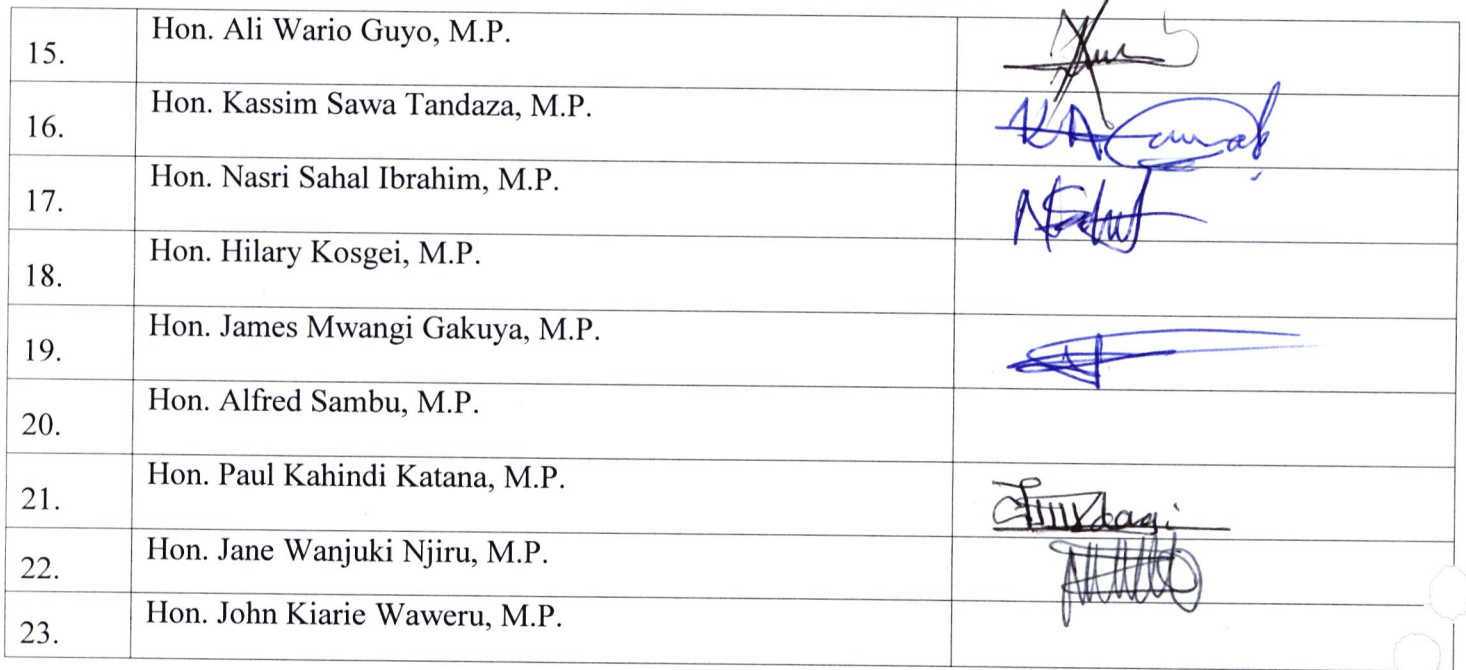 15. Hon. Ali Wario Guyo, M.P.
16. Hon. Kassim Sawa Tandaza, M.P.
17. Hon. Nasri Sahal Ibrahim, M.P.
18. Hon. Hilary Kosgei, M.P.
19. Hon. James Mwangi Gakuya, M.P.
20. Hon. Alfred Sambu, M.P.
21. Hon. Paul Kahindi Katana, M.P.
22. Hon. Jane Wanjuki Njiru, M.P.
23. Hon. John Kiarie Waweru, M.P.